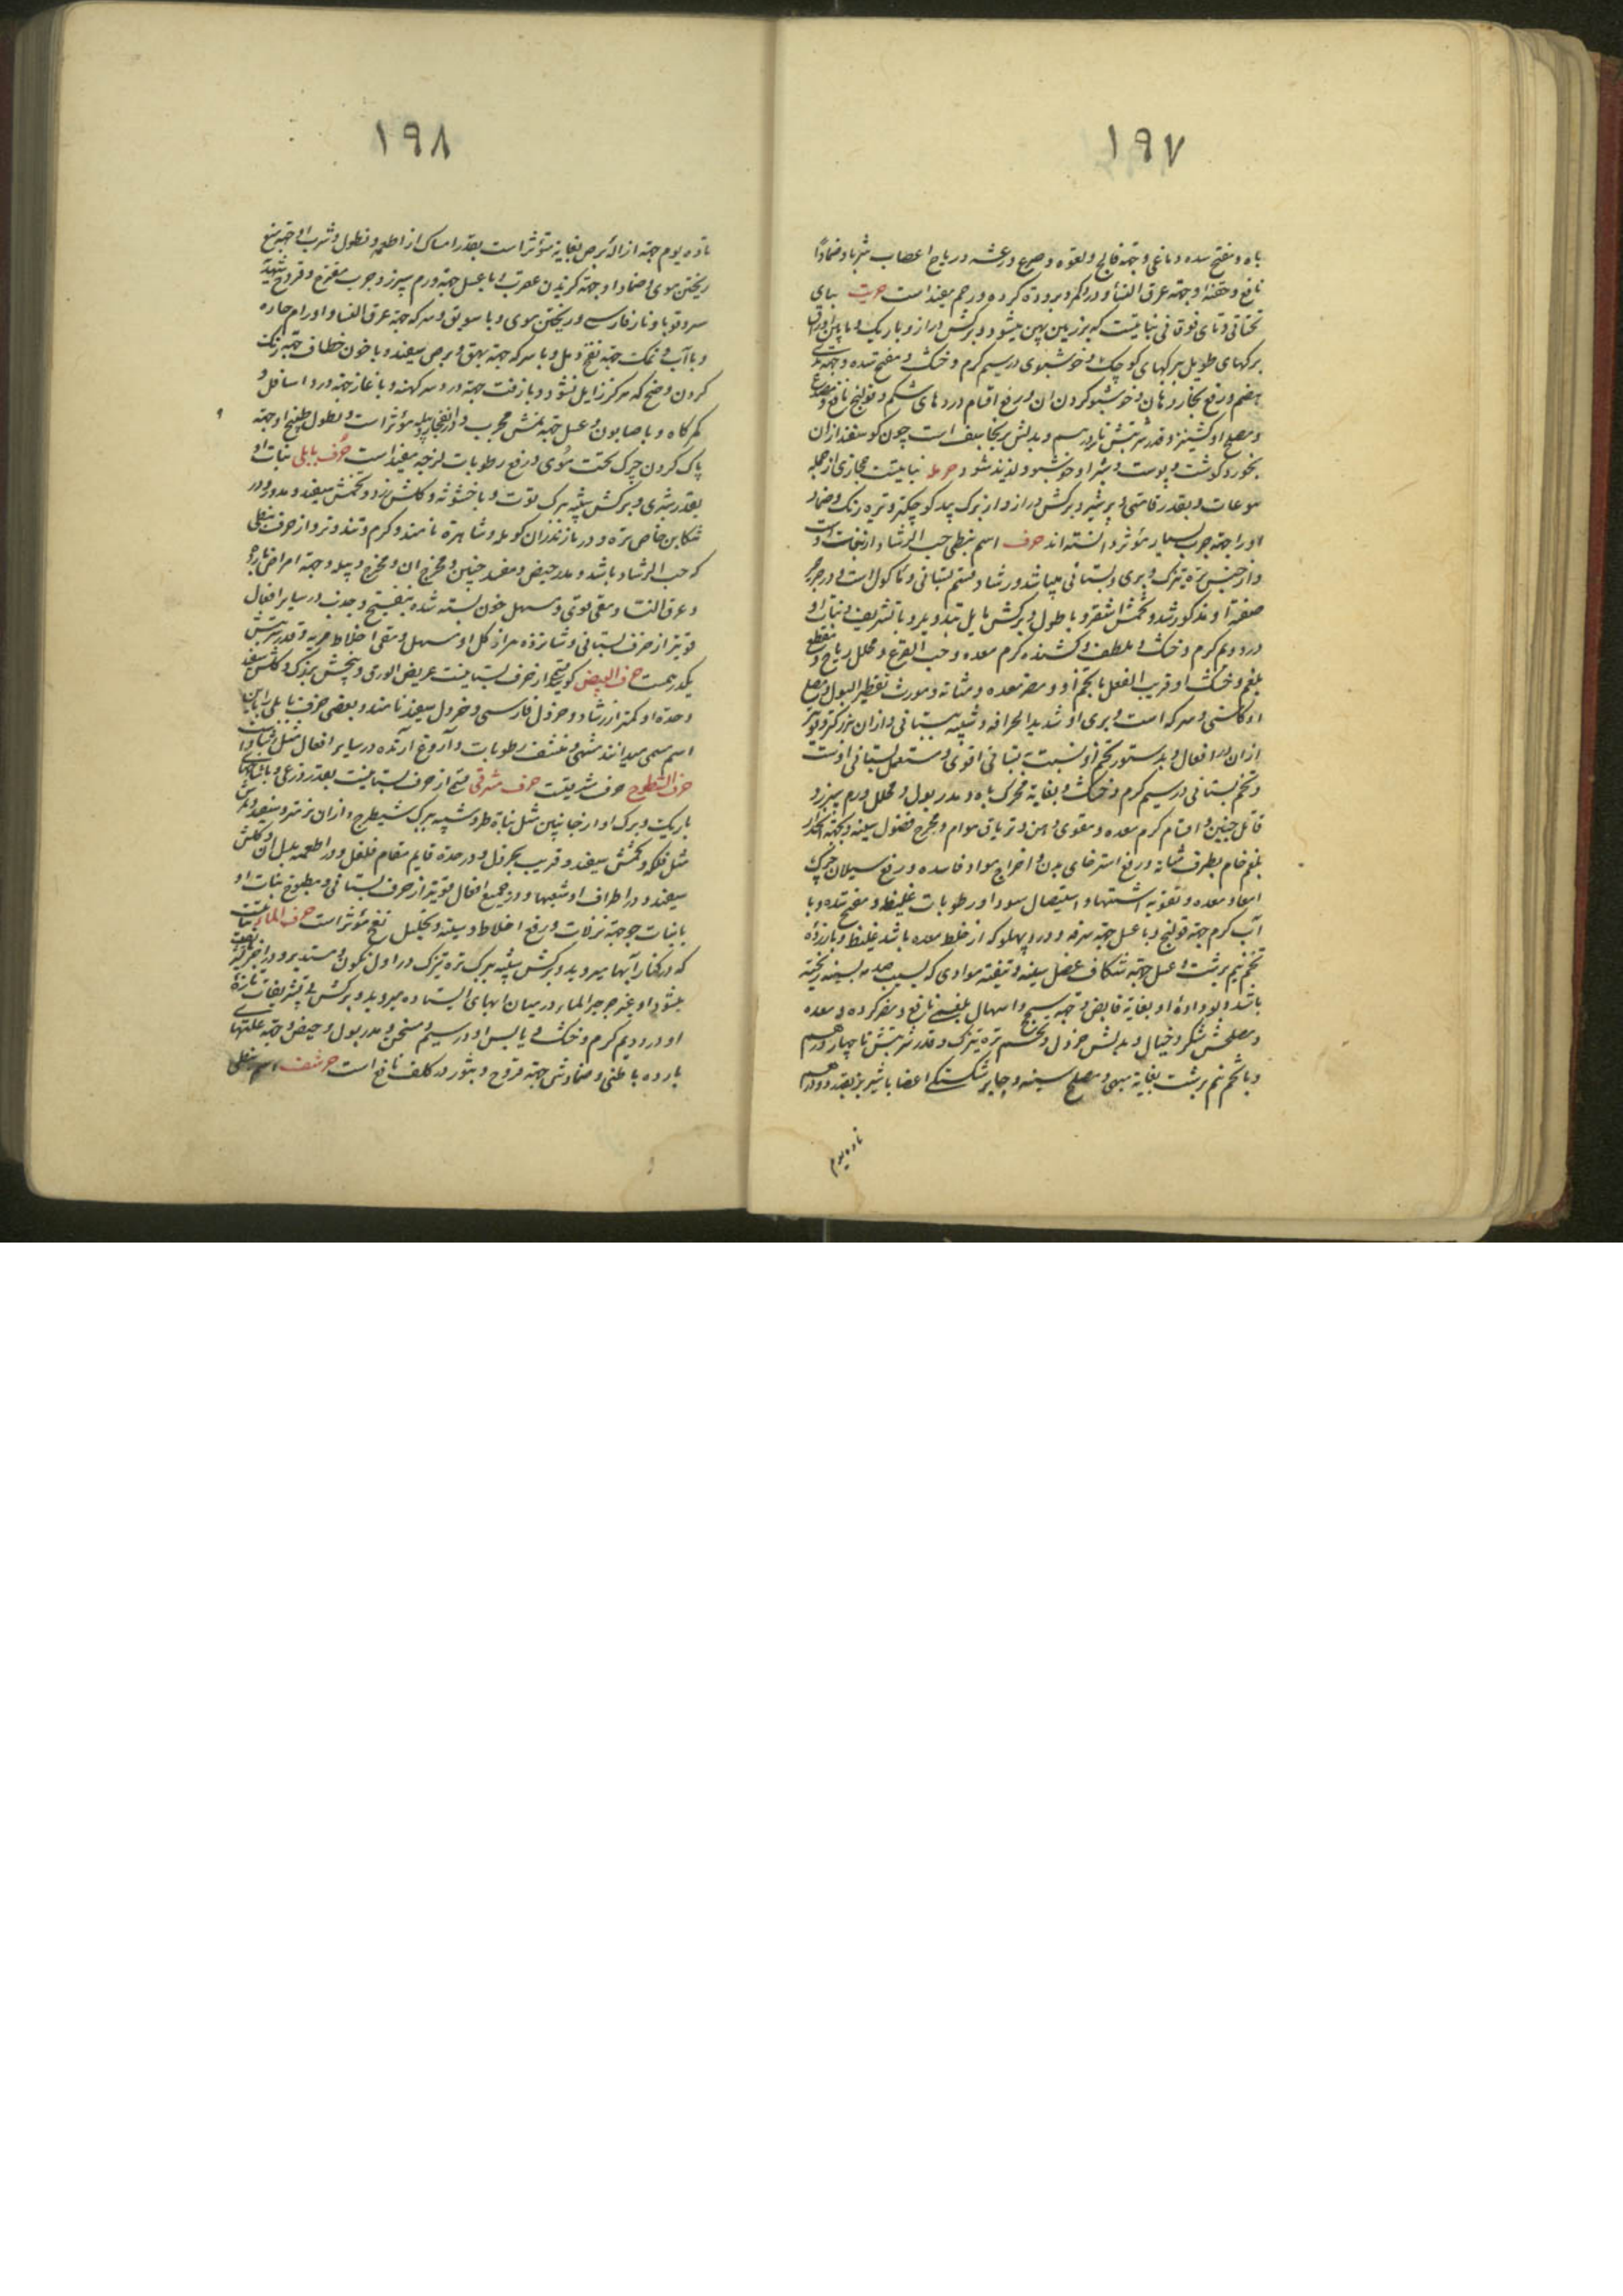 ۱۹۷
باه و مفتح سده دماغی و جهة فالج و لقوه و صرع و رعشه و ریاح اعصاب شربا و ضمادا
نافع و حقنه او جهة عرق النسا و درد کمر و برودة کرده و رحم مفید است حریث بیای
تحتانی و ثای فوقانی نباتیست که بر زمین پهن میشود و برکش دراز و باریک و
برکهای طویل برکهای کوچک و خوشبوی در سیم کرم و خشک و مفتح سده و جهة
هضم و رفع بخار دهان و خوشبو کردن ان و رفع اقسام دردهای شکم و قولنج نافع
و مصلح او کشنیز و قدر شربتش تا دو درهم و بدلش برنجاسف است چون کوسفند از ان
بخورد کوشت و پوست و شیر او خوشبو و لذیذ شود حرملا نباتیست حجازی از جمله
یتوعات و بقدر قامتی و پرشیر و برکش دراز و از برک بید کوچکتر و تیره رنک و ضماد
او را جهة جرب بسیار مؤثر دانسته اند حرف اسم نبطی حب الرشاد است
و از جنس تره تیزک و بری و بستانی میباشد و رشاد قسم بستانی و ماکول است و در جرجیر
صفة او مذکور شد و تخمش اشقر و با طول و برکش مایل بتدویر و با تشریف و نبات او
در دویم کرم و خشک و ملطف و کشنده کرم معده و حب القرع و محلل ریاح و مقطع
بلغم و خشک او قریب الفعل با تخم او و مضر معده و مثانه و مورث تقطیر البول و مصلح
او کاسنی و سرکه است و بری او شدید الحرافه و شبیه ببستانی و از ان بزرکتر و قویتر
از ان در افعال و بدستور تخم او نسبت به بستانی اقوی و مستعمل بستانی اوست
و تخم بستانی در سیم کرم و خشک و بغایة محرک باه و مدر بول و محلل ورم سپرز و
قاتل جنین و اقسام کرم معده و مقوی ذهن و تریاق هوام و مخرج فضول سینه و جهة
بلغم خام بطرف مثانه و رفع استرخای بدن و اخراج مواد فاسده و رفع سیلان چرک
امعا و معده و تقویه اشتها و استیصال سودا و رطوبات غلیظه و مفتح سده و با
آب کرم جهة قولنج و با عسل جهة سرفه و درد پهلو که از خلط معده باشد غلیظ و با زرده
تخم نیم برشت و عسل جهة شکاف عضل سینه و تنقیه موادی که بسبب صدمه بسینه ریخته
باشد و بو داده او بغایة قابض و جهة سحج و اسهال بلغمی نافع و مضر کرده و معده
و مصلحش شکر و خیار و بدلش خردل و تخم تره تیزک و قدر شربتش تا چهار درهم
و با تخم نیم برشت بغایة مبهی و مصلح سینه و جابر شکستکی اعضا با شیر بز بقدر دو درهم
تا ده یوم
۱۹۸
تا ده یوم جهة ازاله برص بغایة مؤثر است بقدر امساک از اطعمه و نطول و شرب او جهة منع
ریختن موی و ضماد او جهة کزیدن عقرب و با عسل جهة ورم سپرز و جرب متقرح و قروح
سر و قوبا و نار فارسی و ریختن موی و با سویق و سرکه جهة عرق النسا و اورام حاره
و با آب و نمک جهة نضج دمل و با سرکه جهة بهق و برص سفید و با خون خطاف جهة رنک
کردن وضح که هرکز زایل نشود و با زفت جهة درد سر کهنه و با غار جهة درد اسافل و
کمرکاه و با صابون و عسل جهة نمش مجرب و در انفجار دبیله مؤثر است و نطول طبیخ او جهة
پاک کردن چرک تحت موی و رفع رطوبات لزجه مفید است حرف بابلی نبات او
بقدر شبری و برکش شبیه ببرک توت و با خشونة و کلش زرد و تخمش سفید و مدور و در
تنکابن خاص تره و در مازندران کوله و شاهتره نامند و کرم و تند و تر از حرف نبطی
که حب الرشاد باشد و مدر حیض و مفسد جنین و مخرج ان و مخرج دبیله و جهة امراض بارده
و عرق النسا و مقی قوی و مسهل خون بسته شده بتفتیح و جذب و در سایر افعال
قویتر از حرف بستانی و شانزده مرا از کل او مسهل و مقی اخلاط مریه و قدر شربتش
یکدرهمست حرف ابیض کویند از حرف بستانیست عریض الورق و بیخش بزرک و کلش سفید
و حدة او کمتر از رشاد و خردل فارسی و خردل سفید نامند و بعضی حرف بابلی را باین
اسم مسمی میدانند مشهی و منشف رطوبات و آروغ آرنده و در سایر افعال مثل رشاد است
حرف السطوح حرف شرقیست حرف مشرقی قسمی از حرف بستانیست بقدر ذرعی و با شاخهای
باریک و برک او از جانبین مثل نباة طر و شبیه ببرک شیطرج و از ان نرمتر و سفیدتر
مثل فلکه و تخمش سفید و قریب بخردل و در حدة قایم مقام فلفل و در اطعمه بدل ان و کلش
سفید و در اطراف او شعبها و در جمیع افعال قویتر از حرف بستانی و مطبوخ نبات او
با نبات جو جهة نزلات و رفع اخلاط و سینه و تحلیل نفخ مؤثر است حرف الماء نباتیست
که در کنار آبها میروید و برکش شبیه ببرک تره تیزک در اول تکون و مستدیر و در اخر
میشود و غیر جرجیر الماء در میان ابهای ایستاده میروید و برکش و تشریفات تازه
او در دویم کرم و خشک و یابس او در سیم و مسخن و مدر بول و حیض و جهة علتهای
بارده باطنی و ضمادش جهة قروح و بثور و کلف نافع است حرشف اسم نبطی